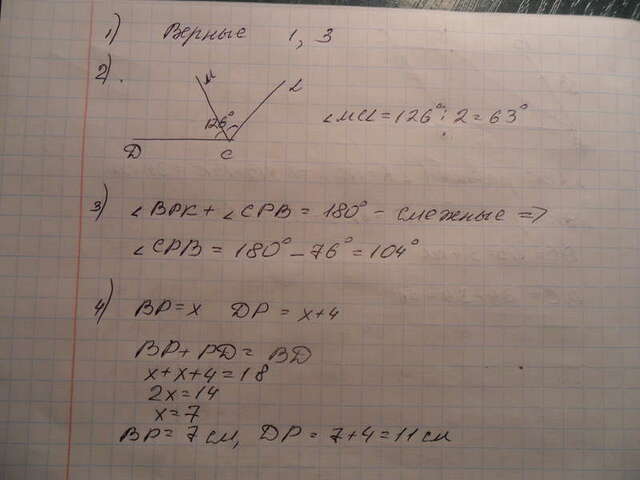 1) Верные 1, 3
2).
M
L
126°
D
C
∠MCL = 126° : 2 = 63°
3) ∠BPK + ∠CPB = 180° - смежные =>
∠CPB = 180° - 76° = 104°
4) BP = x DP = x+4
BP + PD = BD
x + x + 4 = 18
2x = 14
x = 7
BP = 7 см, DP = 7+4 = 11 см